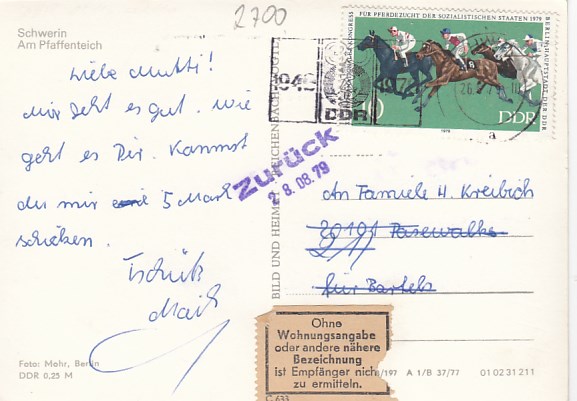 2700
Schwerin
Am Pfaffenteich
Liebe Mutti!
Mir geht es gut. Wie
geht es Dir. Kannst
du mir 5 Mark
schicken.
Tschüß
Maik
Foto: Mohr, Berlin
DDR 0,25 M
BILD UND HEIMAT REICHENBACH
KONGRESS FÜR PFERDEZUCHT DER SOZIALISTISCHEN STAATEN 1979
BERLIN-HAUPTSTADT DER DDR
10
DDR
1979
1949
DDR
a
Zurück
28.08.79
An Familie H. Kreibich
Pasewalk
für Bartels
Ohne
Wohnungsangabe
oder andere nähere
Bezeichnung
ist Empfänger nicht
zu ermitteln.
C 633
1/197 A 1/B 37/77 01 02 31 211